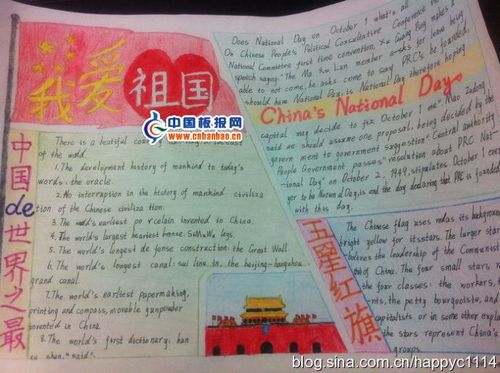 我爱祖国
中国板报网
www.cnbanbao.cn
中国de世界之最
There is a beatiful
of the world.
1. The development history of mankind to today's
words, the oracle.
2. No interruption in the history of mankind civiliza
tion of the Chinese civiliza tion.
3. The world's earliest porcelain invented in China.
4. The world's largest heaviest bronze: SiMuWu
5. The world's longest de fense construction: the Great Wall.
6. The world's longest canal: sui line in, the beijing-hangzhou
grand canal.
7. The world's earliest papermaking,
printing and compass, movable gunpowder
invented in China.
8. The world's first dictionary: han
xu shen, "said"
Does National Day on October 1 what's
On Chinese People's Political Consultative Conference
National Committee first time convention, Xu Guang Ping makes a
speech saying: "The Ma Xu Lun member asks for leave being
able to not come, he asks come to say PRC's be founded,
should have National Day, is National Day therefore hoping
China's National Day
capital may decide to fix October 1 me" Mao Zedong
said we should assume one proposal, being decided by the
govern ment to government suggestion" Central authority
People Government passes "resolution about PRC Nat
ional Day" on October 2, 1949, stipulates October 1 ever
yer to be National Day, is and the day declaring that PRC is founded
with this day.
五星红旗
The Chinese flag uses red as its background
bright yellow for its stars. The larger star
the leadership of the Communist
of China. The four small stars,
the four classes: the workers,
nts, the petty bourgeoisie, and
capitalists or in some other expla
the stars represent China's
groups.
blog.sina.com.cn/happyc1114